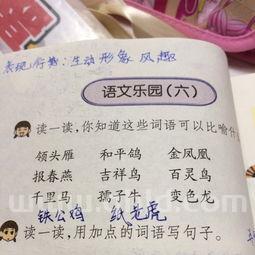 表现形势：生动形象 风趣
语文乐园（六）
读一读，你知道这些词语可以比喻什
领头雁 和平鸽 金凤凰
报春燕 吉祥鸟 百灵鸟
千里马 孺子牛 变色龙
铁公鸡 纸老虎
读一读，用加点的词语写句子。